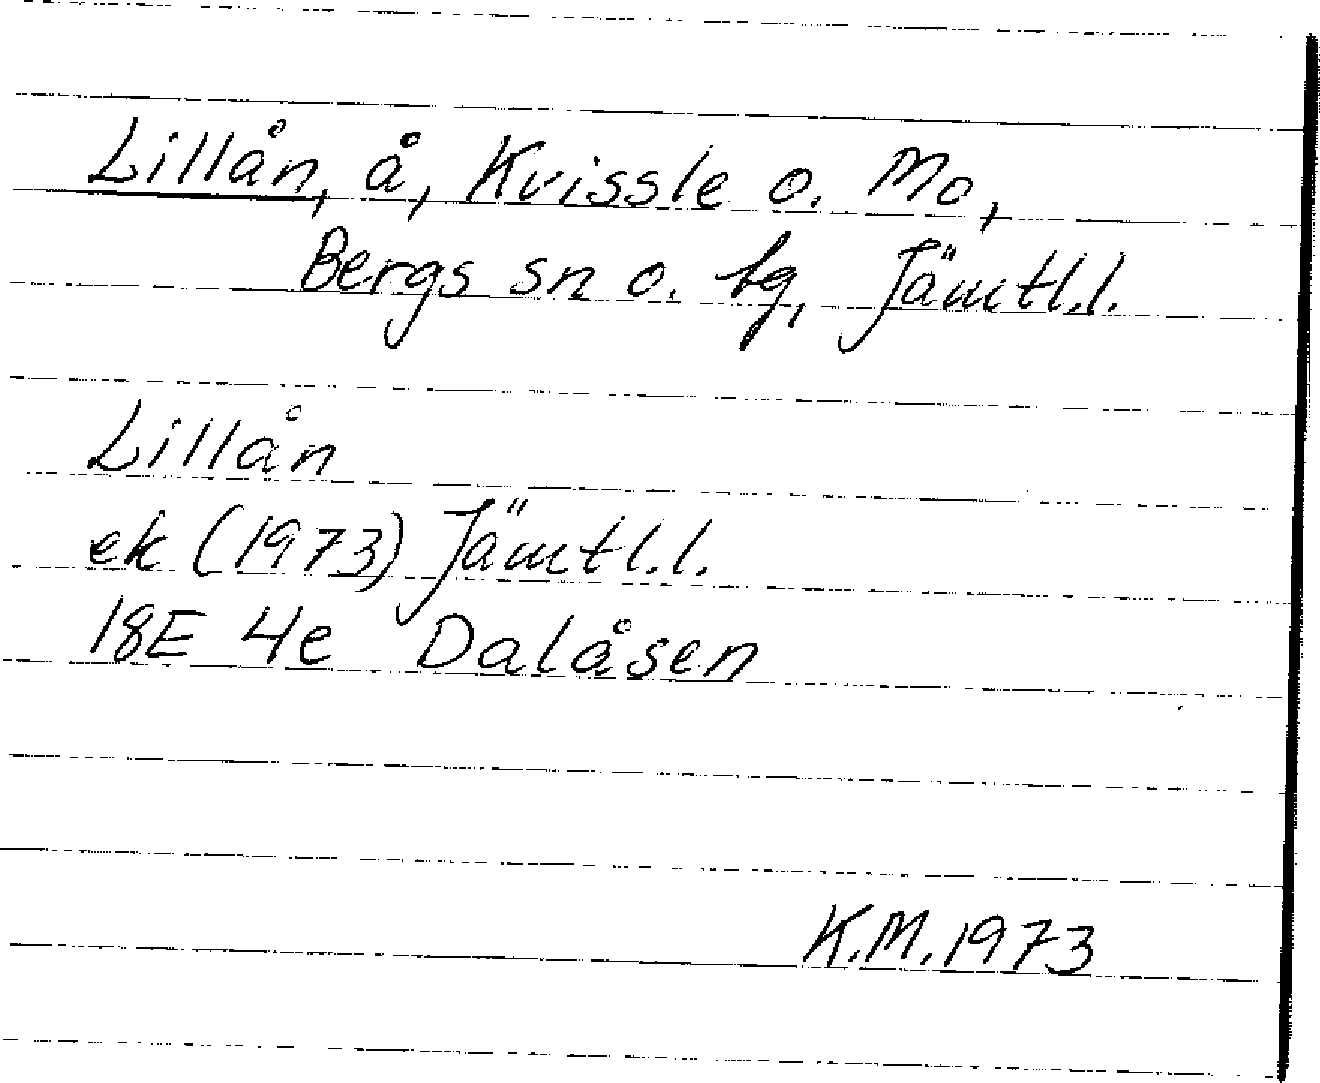 Lillån, å, Kvissle o. Mo,
Bergs sn o. tg, Jämtl.l.
Lillån
ek (1973) Jämtl.l.
18E 4e Dalåsen
K.M.1973